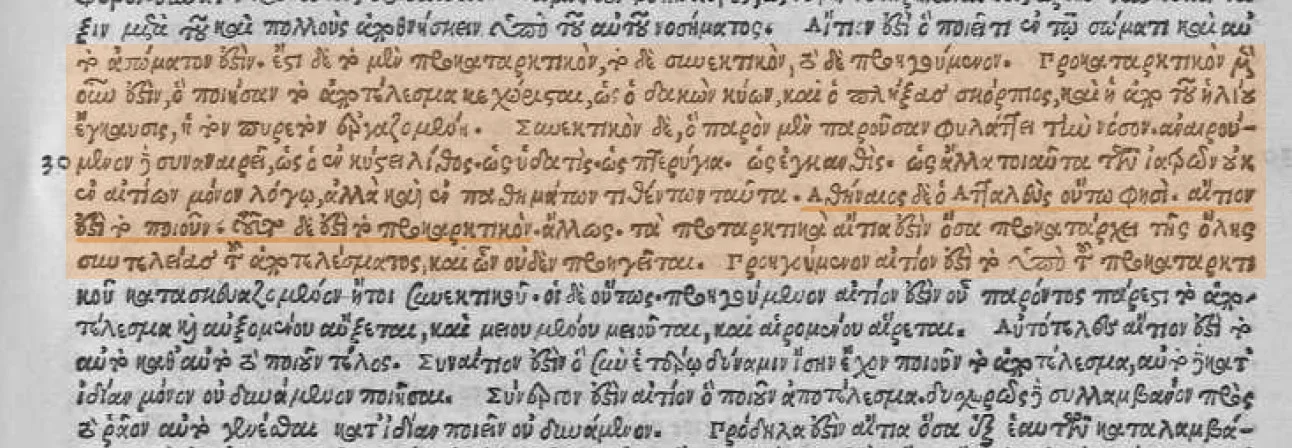 ξιν μετὰ τοῦ καὶ πολλοὺς ἀποθνήσκειν ὑπὸ τοῦ αὐτοῦ νοσήματος. Αἴτιόν ἐστι ὃ ποιεῖ τι ἐν τῷ σώματι καὶ αὐ
τὸ ἀσώματόν ἐστιν. ἔστι δὲ τὸ μὲν προκαταρκτικὸν, τὸ δὲ συνεκτικὸν, τὸ δὲ προηγούμενον. Προκαταρκτικὸν μὲν
οὖν ἐστιν, ὃ ποιῆσαν τὸ ἀποτέλεσμα κεχώρισται, ὡς ὁ δακὼν κύων, καὶ ὁ πλήξας σκόρπιος, καὶ ἡ ἀπὸ τοῦ ἡλίου
ἔγκαυσις, ἡ τὸν πυρετὸν ἐργαζομένη. Συνεκτικὸν δὲ, ὃ παρὸν μὲν παροῦσαν φυλάττει τὴν νόσον. ἀναιρού-
30 μενον δὲ συναναιρεῖ, ὡς ὁ ἐν κύστει λίθος. ὡς ὑδατὶς. ὡς πτερύγια. ὡς ἐγκανθὶς. ὡς ἄλλα τοιαῦτα τῶν ἰατρῶν οὐκ
ἐν αἰτίων μόνον λόγῳ, ἀλλὰ καὶ ἐν παθημάτων τιθέντων ταῦτα. Αθήναιος δὲ ὁ Ατταλεὺς οὕτω φησὶ. αἴτιον
ἐστι τὸ ποιοῦν. τοῦτο δὲ ἐστι τὸ προκαταρκτικὸν. ἄλλως. τὰ προκαταρκτικὰ αἴτιά ἐστιν ὅσα προκατάρχει τῆς ὅλης
συντελείας τοῦ ἀποτελέσματος, καὶ ὧν οὐδὲν προηγεῖται. Προηγούμενον αἴτιον ἐστι τὸ ὑπὸ τοῦ προκαταρκτι
κοῦ κατασκευαζομένον ἤτοι συνεκτικοῦ. οἱ δὲ οὕτως. προηγούμενον αἴτιον ἐστιν οὗ παρόντος πάρεστι τὸ ἀπο-
τέλεσμα καὶ αὐξομένου αὔξεται, καὶ μειουμένου μειοῦται, καὶ αἱρομένου αἵρεται. Αὐτοτελὲς αἴτιον ἐστι τὸ
αὐτὸ καθ' αὑτὸ τὸ ποιοῦν τέλος. Συναίτιον ἐστιν ὃ σὺν ἑτέρῳ δύναμιν ἴσην ἔχον ποιοῦν τὸ ἀποτέλεσμα, αὐτὸ δὲ κατ'
ἰδίαν μόνον οὐ δυνάμενον ποιῆσαι. Σύνεργον ἐστιν αἴτιον ὃ ποιοῦν ἀποτέλεσμα. δυσχερῶς δὲ συλλαμβάνον πρὸς
τὸ ῥᾷον αὐτὸ γενέσθαι κατ' ἰδίαν ποιεῖν οὐ δυνάμενον. Πρόδηλά ἐστιν αἴτια ὅσα ἐξ ἑαυτῶν καταλαμβά-